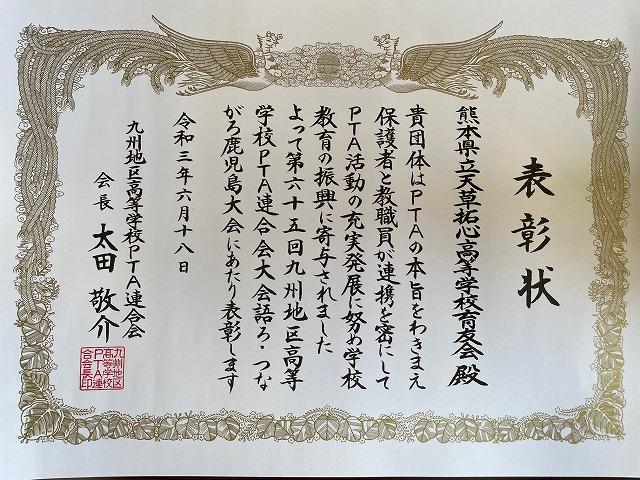 表彰状
熊本県立天草拓心高等学校育友会殿
貴団体はPTAの本旨をわきまえ
保護者と教職員が連携を密にして
PTA活動の充実発展に努め学校
教育の振興に寄与されました
よって第六十五回九州地区高等
学校PTA連合会大会語ろ・つな
がろ鹿児島大会にあたり表彰します
令和三年六月十八日
九州地区高等学校PTA連合会
会長 太田敬介
九州地区
高等学校
PTA連
合会長印